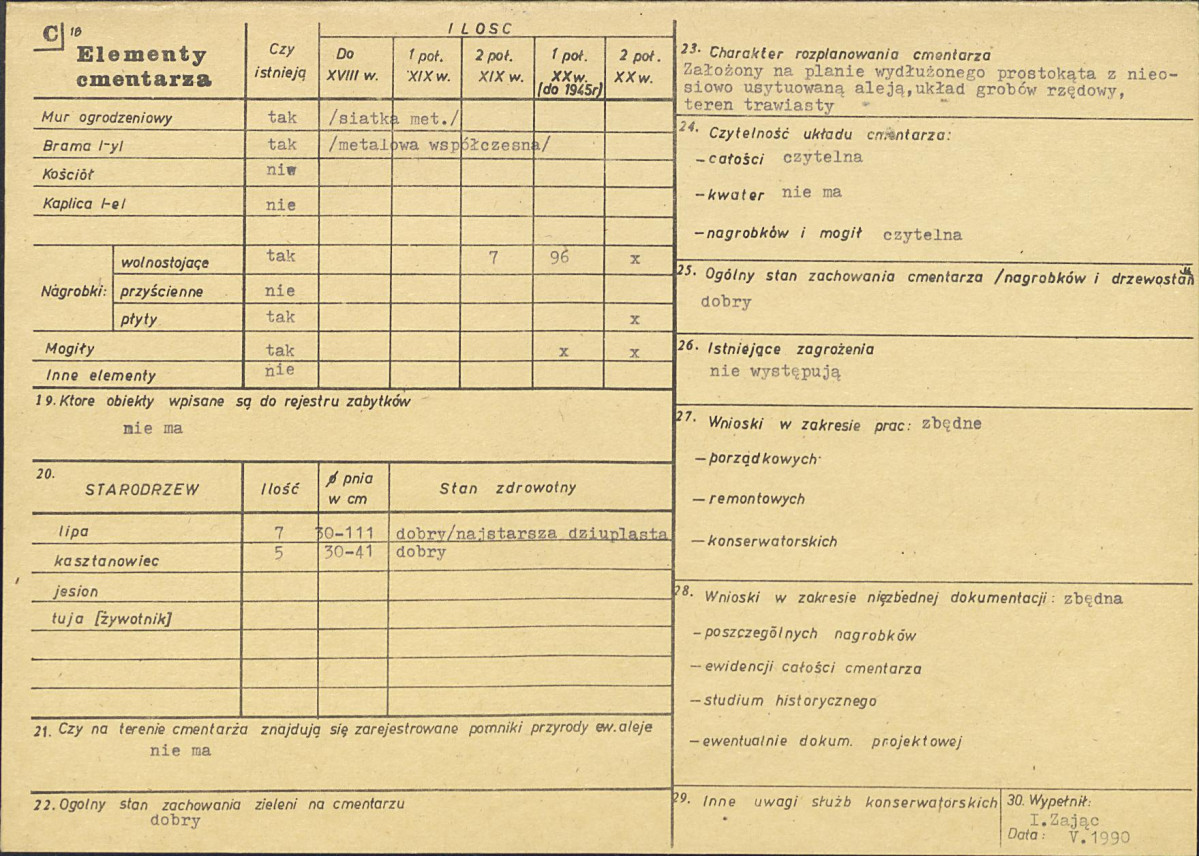 C 18
Elementy
cmentarza
Czy
istnieją
ILOSC
Do
XVIII w.
1 poł.
XIX w.
2 poł.
XIX w.
1 poł.
XX w.
(do 1945r)
2 poł.
XX w.
Mur ogrodzeniowy tak /siatka met./
Brama /-y/ tak /metalowa współczesna/
Kościół nie
Kaplica /-e/ nie
Nagrobki: wolnostojące tak 7 96 x
przyścienne nie
płyty tak x
Mogiły tak x x
Inne elementy nie
19. Ktore obiekty wpisane są do rejestru zabytków
nie ma
20.
STARODRZEW Ilość ø pnia
w cm Stan zdrowotny
lipa 7 30-111 dobry/najstarsza dziuplasta
kasztanowiec 5 30-41 dobry
jesion
tuja [żywotnik]
21. Czy na terenie cmentarza znajdują się zarejestrowane pomniki przyrody ew. aleje
nie ma
22. Ogolny stan zachowania zieleni na cmentarzu
dobry
23. Charakter rozplanowania cmentarza
Założony na planie wydłużonego prostokąta z nieo-
siowo usytuowaną aleją,układ grobów rzędowy,
teren trawiasty
24. Czytelność układu cmentarza:
- całości czytelna
- kwater nie ma
- nagrobków i mogił czytelna
25. Ogólny stan zachowania cmentarza /nagrobków i drzewostan
dobry
26. Istniejące zagrożenia
nie występują
27. Wnioski w zakresie prac: zbędne
- porządkowych
- remontowych
- konserwatorskich
28. Wnioski w zakresie niezbędnej dokumentacji: zbędna
- poszczególnych nagrobków
- ewidencji całości cmentarza
- studium historycznego
- ewentualnie dokum. projektowej
29. Inne uwagi służb konserwatorskich
30. Wypełnił:
I.Zając
Data: V.1990